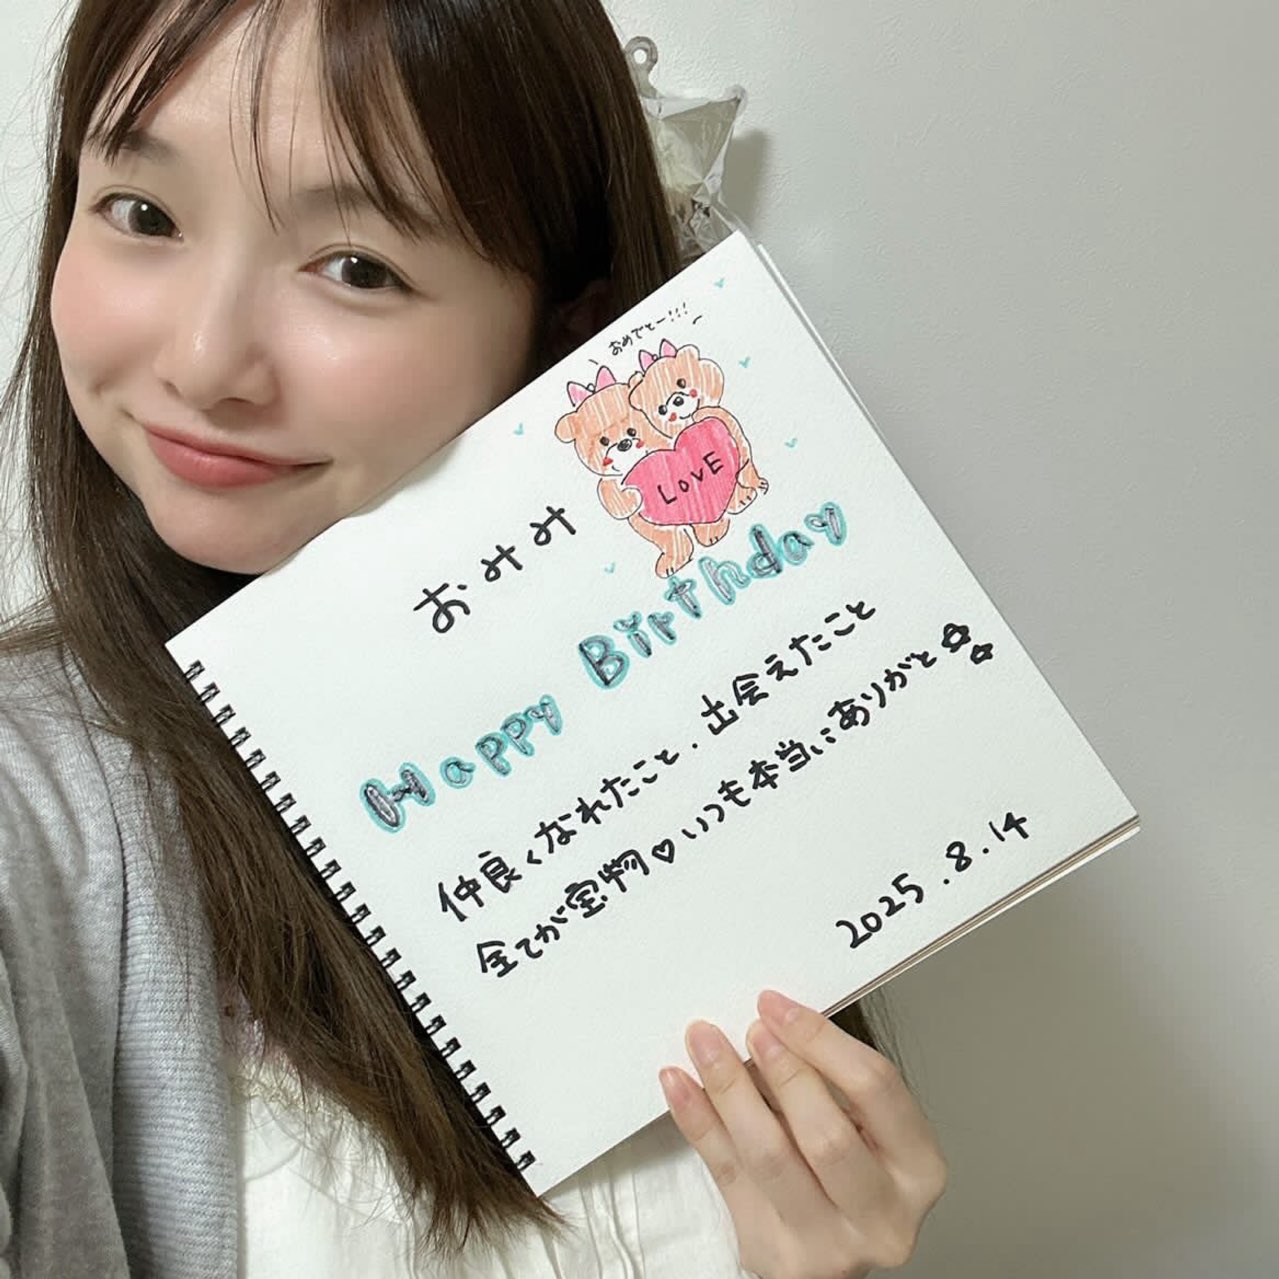 おめでとー!!!
LOVE
おみみ
Happy Birthday
仲良くなれたこと、出会えたこと
全てが宝物♡いつも本当にありがと
2025.8.14